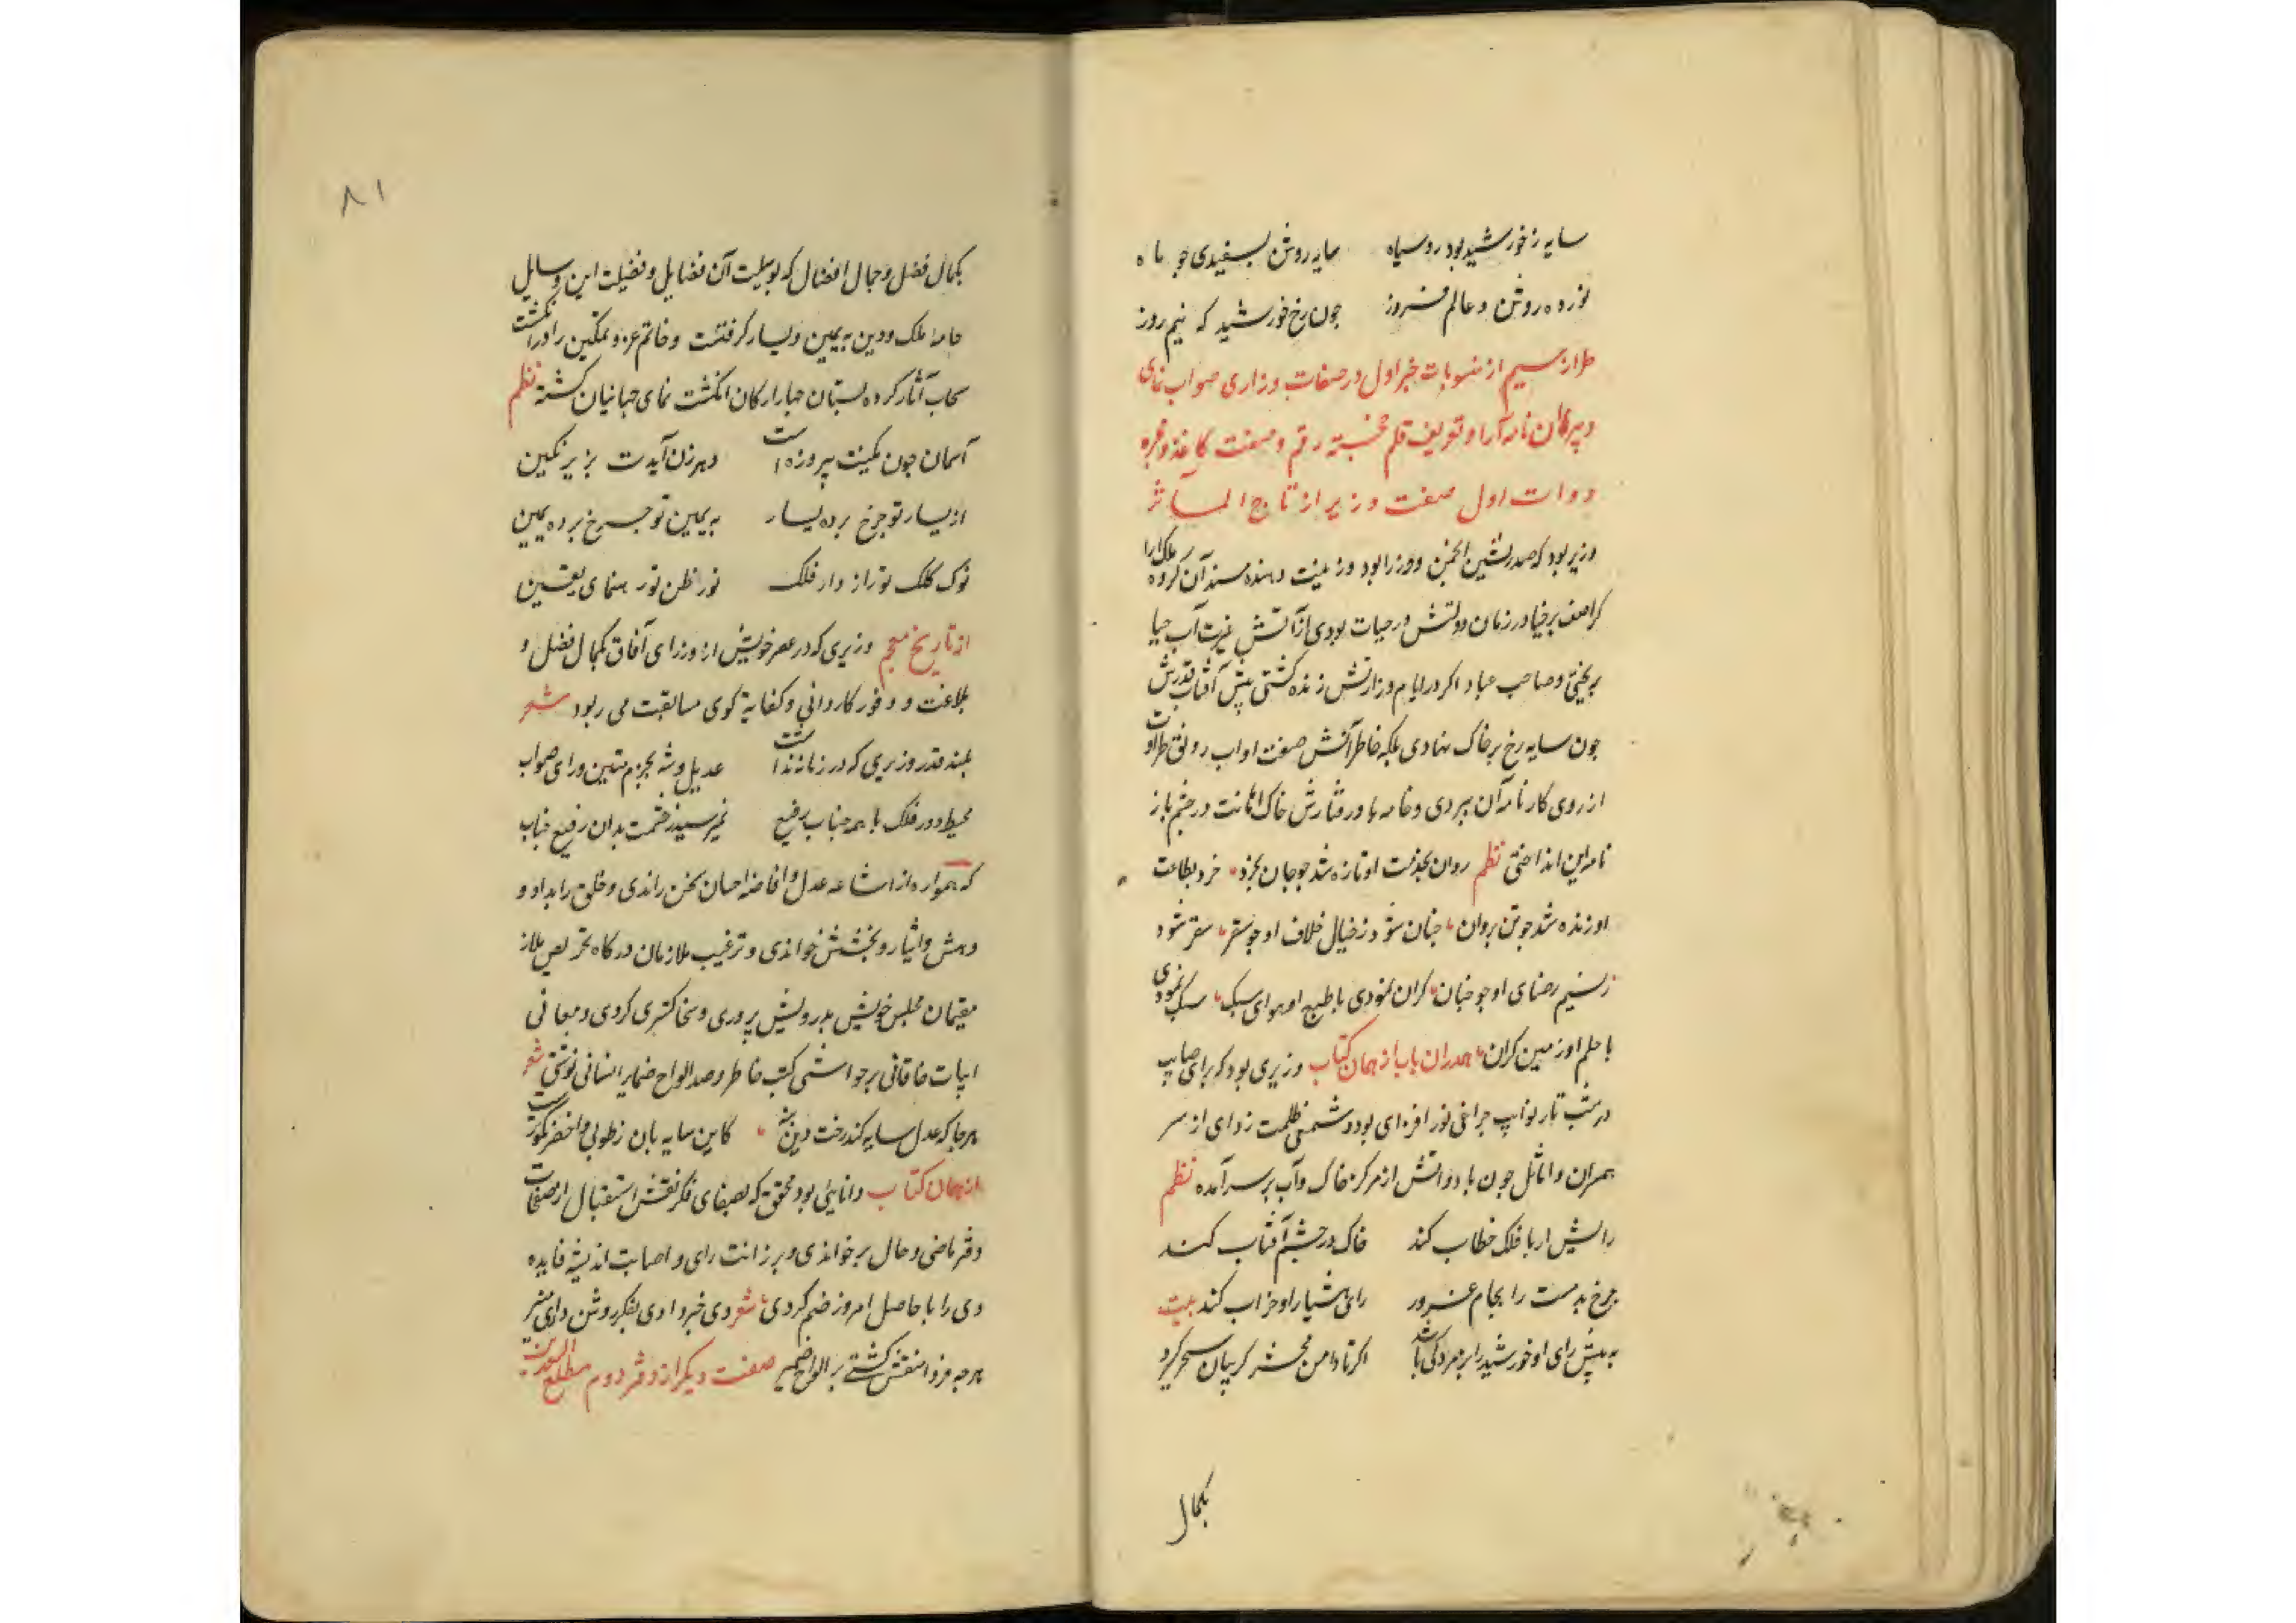 سایه ز خورشید بود روسیاه سایه روشن بسفیدی چو ماه
نور ده روشن و عالم فروز چون رخ خورشید که نیم روز
طراز سیم از منسوبات خبر اول در صفات وزاری صواب نمای
دبیران نامه آرا و تعریف قلم خجسته رقم و صفت کاغذ و غیره
دوات اول صفت وزیر از تاج المآثر
وزیر بود که صدرنشین انجمن وزرا بود و زینت دهنده مسند آن گروه ملک آرا
کراصف برخیا در زمان دولتش در حیات بودی از آتش غیرت آب حیا
بریختی و صاحب عباد اکر در ایام وزارتش زنده کشتی پیش آفتاب قدرش
چون سایه رخ بر خاک نهادی بلکه خاطر آتش صفت او آب رونق طراوت
از روی کارنامه آن ببردی و خامه باد رفتارش خاک اهانت در چشم باز
نامه این انداختی نظم روان بخدمت او تازه شد چو جان بخرد خرد بطاعت
او زنده شد چو تن بروان چنان شود ز خیال خلاف او چو سقر سقر شود
ز نسیم رضای او چو جنان کران نمودی با طبع او هوای سبک سبک نمودی
با حلم او زمین کران همدران باب از همان کتاب وزیری بود که برای صایب
در شب تار نوایب چراغی نور افزای بود و شمعی ظلمت زدای از سر
همران و اماثل چون باد و آتش از مرکز خاک و آب برسر آمده نظم
رایش ار با فلک خطاب کند خاک در چشم آفتاب کند
چرخ بدمست را بجام غرور رای هشیار او خراب کند بیت
به پیش رای او خورشید را برمردکی باشد اکر تا دامن محشر کریبان سحر کیرد
بکمال
۸۱
بکمال فضل و جمال افضال که بوسیلت آن فضایل و فضیلت این وسایل
جامه ملک و دین به یمین و یسار کرفتست و خاتم عز و تمکین را در انکشت
سحاب آثار کرده بستان جبار ارکان انکشت نمای جهانیان کشته نظم
آسمان چون نکینت پیروزه است دهر زان آیدت بزیر نکین
از یسار تو چرخ برده یسار به یمین تو چرخ برده یمین
نوک کلک تو راز دار فلک نور ظن تو رهنمای یقین
از تاریخ معجم وزیری که در عصر خویش از وزرای آفاق بکمال فضل و
بلاغت و وفور کاردانی و کفایة کوی مسابقت می ربود شعر
بلند قدر وزیری که در زمانه نداشت عدیل و شبه بحزم متین و رای صواب
محیط دور فلک با همه جناب رفیع نمیرسید ز حشمت بدان رفیع جناب
که همواره از اشاعه عدل و افاضه احسان سخن راندی و خلق را بداد و
دهش و ایثار و بخشش خواندی و ترغیب ملازمان درکاه تحریص ملاز
مقیمان مجلس خویش بدرویش پروری و سخا کستری کردی و معانی
ابیات خاقانی بر حواشی کتب خاطر و صد الواح ضمایر انسانی نوشتی شعر
هرجا که عدل سایه کند رخت دین بنه کاین سایه بان ز طوبی اخضر نکوترست
از همان کتاب دانایی بود محقق که بصفای فکر نقش استقبال از صفحات
دفتر ماضی و حال برخواندی و برزانت رای و اصابت اندیشه فایده
دی را با حاصل امروز ضم کردی شعر دی خبر دادی بفکر روشن و رای منیر
هرچه فردا منقش کشتی بر الواح ضمیر صفت دیکر از دفتر دوم مطلع السعدین